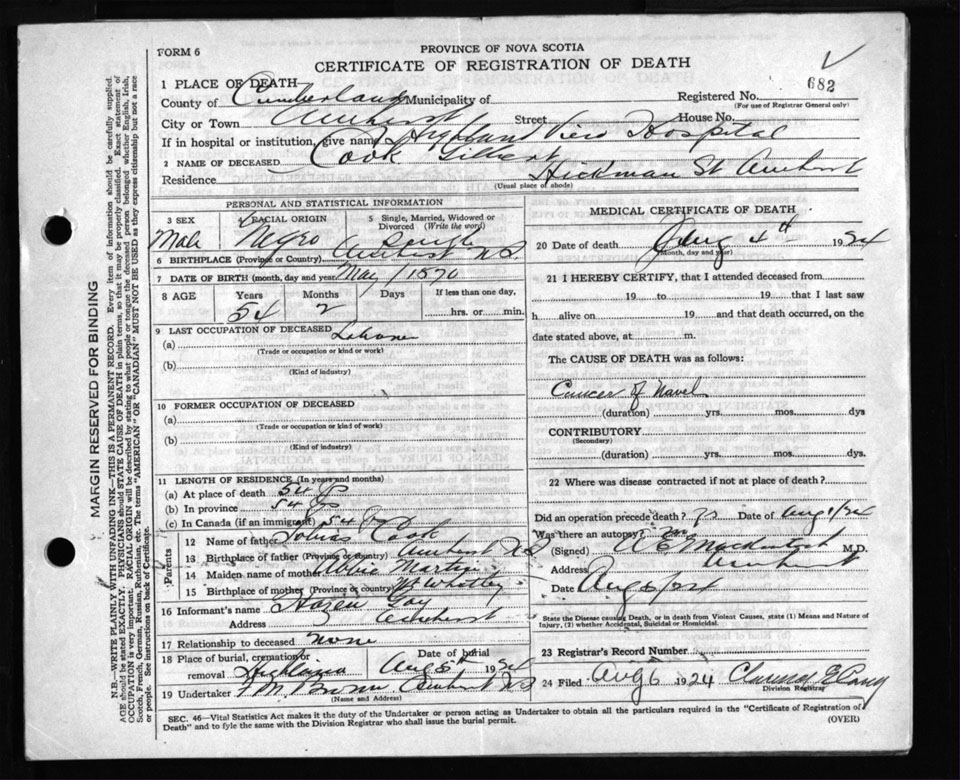 FORM 6
PROVINCE OF NOVA SCOTIA
CERTIFICATE OF REGISTRATION OF DEATH
682
1 PLACE OF DEATH
Registered No.
(For use of Registrar General only)
County of Cumberland Municipality of
City or Town Amherst Street House No.
If in hospital or institution, give name Highland View Hospital
2 NAME OF DECEASED Cook Gilbert
Residence Hickman St Amherst
(Usual place of abode)
PERSONAL AND STATISTICAL INFORMATION
3 SEX 4 RACIAL ORIGIN 5 Single, Married, Widowed or Divorced (Write the word)
Male Negro Single
6 BIRTHPLACE (Province or Country) Amherst N S
7 DATE OF BIRTH (month, day and year) May 1870
8 AGE Years Months Days If less than one day,
54 2 hrs. or min.
9 LAST OCCUPATION OF DECEASED
(a) Laborer
(Trade or occupation or kind or work)
(b)
(Kind of industry)
10 FORMER OCCUPATION OF DECEASED
(a)
(Trade or occupation or kind of work)
(b)
(Kind of industry)
11 LENGTH OF RESIDENCE (In years and months)
(a) At place of death 54
(b) In province 54
(c) In Canada (if an immigrant) 54
Parents
12 Name of father Tobias Cook
13 Birthplace of father (Province or country) Amherst N S
14 Maiden name of mother Abbie Martin
15 Birthplace of mother (Province or country) Mt Whatley
16 Informant's name Hazen Gay
Address Amherst
17 Relationship to deceased none
18 Place of burial, cremation or removal Highland
Date of burial Aug 5th 1924
19 Undertaker F. M. Brown Amherst N S
(Name and Address)
MEDICAL CERTIFICATE OF DEATH
20 Date of death Aug 4th 1924
(Month, day and year)
21 I HEREBY CERTIFY, that I attended deceased from
19 to 19 that I last saw
h alive on 19 and that death occurred, on
date stated above, at m.
The CAUSE OF DEATH was as follows:
Cancer of Navel
(duration) yrs. mos. dys
CONTRIBUTORY
(Secondary)
(duration) yrs. mos. dys.
22 Where was disease contracted if not at place of death?
Did an operation precede death? Date of Aug 1/24
Was there an autopsy? no
(Signed) A E Mackintosh M.D.
Address Amherst
Date Aug 6/24
State the Disease causing Death, or in death from Violent Causes, state (1) Means and Nature of
Injury, (2) whether Accidental, Suicidal or Homicidal.
23 Registrar's Record Number
24 Filed Aug 6 1924 Clarence E
Division Registrar
SEC. 46—Vital Statistics Act makes it the duty of the Undertaker or person acting as Undertaker to obtain all the particulars required in the "Certificate of Registration of
Death" and to fyle the same with the Division Registrar who shall issue the burial permit.
(OVER)
MARGIN RESERVED FOR BINDING
N.B.—WRITE PLAINLY WITH UNFADING INK—THIS IS A PERMANENT RECORD. Every item of information should be carefully supplied.
AGE should be stated EXACTLY. PHYSICIANS should STATE CAUSE OF DEATH in plain terms, so that it may be properly classified. Exact statement of
OCCUPATION is very important. RACIAL ORIGIN will be described by stating to what people or tongue the deceased person belonged whether English, Irish,
Scotch, French, German, Russian, Ruthenian, etc. The terms "AMERICAN" OR "CANADIAN" MUST NOT BE USED as they express citizenship but not a race
or people. See instructions on back of Certificate.